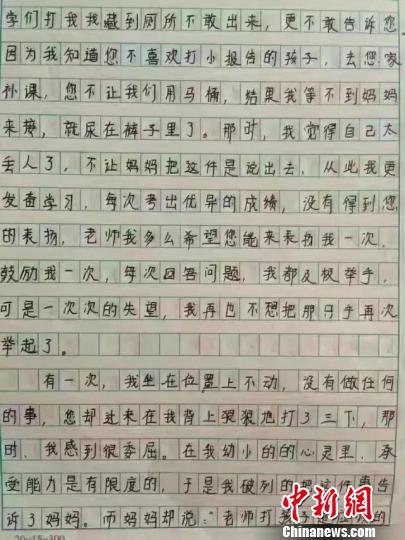 学们打我我藏到厕所不敢出来，更不敢告诉您。
因为我知道您不喜欢打小报告的孩子，去您家
补课，您不让我们用马桶，结果我等不到妈妈
来接，就尿在裤子里了。那时，我觉得自己太
丢人了，不让妈妈把这件是说出去，从此我更
发奋学习，每次考出优异的成绩，没有得到您
的表扬，老师我多么希望您能来表扬我一次，
鼓励我一次，每次回答问题，我都及极举手，
可是一次次的失望，我再也不想把那只手再次
举起了。
有一次，我坐在位置上不动，没有做任何
的事，您却进来在我背上狠狠地打了三下，那
时，我感到很委屈。在我幼小的的心灵里，承
受能力是有限度的，于是我破列的把这件事告
诉了妈妈。而妈妈却说："老师打孩子是
的
20×15=300
中新网
Chinanews.com